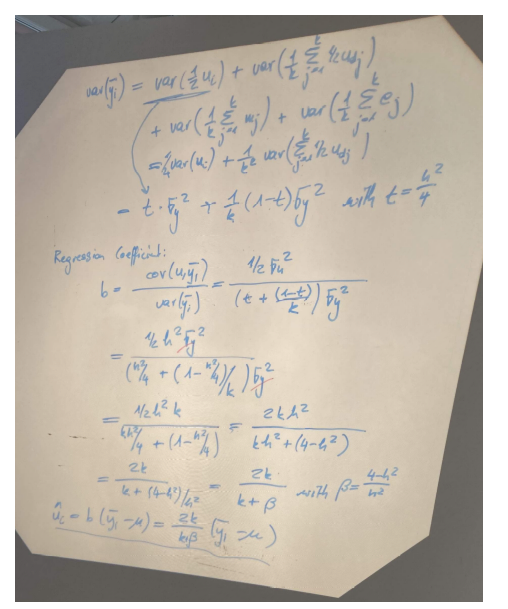 var(ȳᵢ) = var(½ uᵢ) + var(1/k Σⱼ₌₁ᵏ ½ u_dj)
+ var(1/k Σⱼ₌₁ᵏ mⱼ) + var(1/k Σⱼ₌₁ᵏ eⱼ)
= ¼ var(uᵢ) + 1/k² var(Σⱼ₌₁ᵏ ½ u_dj)
= t · σ_y² + 1/k (1-t) σ_y² with t = h²/4
Regression Coefficient:
b = cov(u, ȳᵢ) / var(ȳᵢ) = ½ σ_u² / (t + (1-t)/k) σ_y²
= ½ h² σ_y² / (h²/4 + (1 - h²/4)/k) σ_y²
= ½ h² k / kh²/4 + (1 - h²/4) = 2kh² / kh² + (4-h²)
= 2k / k + (4-h²)/h² = 2k / k + β with β = 4-h² / h²
ûᵢ = b (ȳᵢ - μ) = 2k / k+β (ȳᵢ - μ)